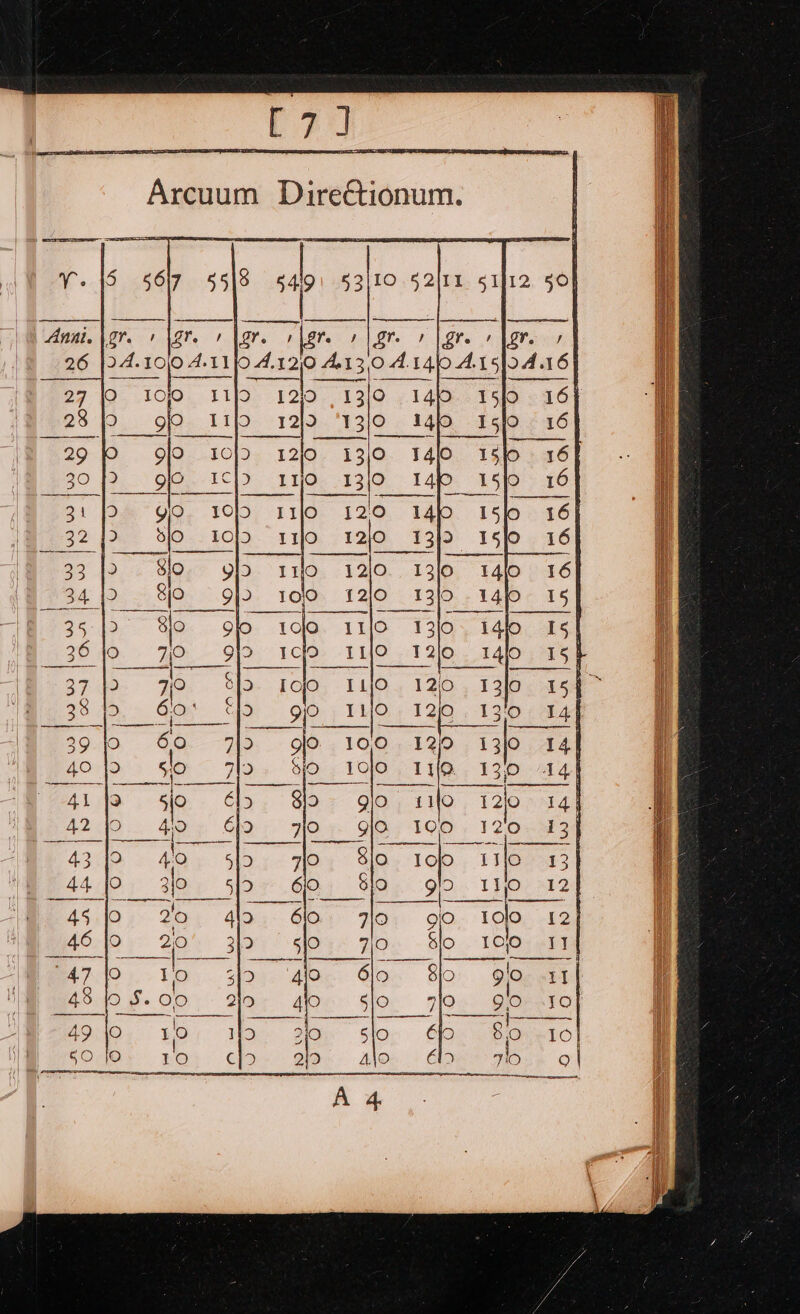 [ 7 ]
Arcuum Directionum.
♈. 6 56 7 55 8 54 9 53 10 52 11 51 12 50
Anni. gr. ′ gr. ′ gr. ′ gr. ′ gr. ′ gr. ′ gr. ′
26 0 A.10 0 A.11 0 A.12 0 A.13 0 A.14 0 A.15 0 A.16
27 0 10 0 11 0 12 0 13 0 14 0 15 0 16
28 0 9 0 11 0 12 0 13 0 14 0 15 0 16
29 0 9 0 10 0 12 0 13 0 14 0 15 0 16
30 0 9 0 10 0 11 0 13 0 14 0 15 0 16
31 0 9 0 10 0 11 0 12 0 14 0 15 0 16
32 0 8 0 10 0 11 0 12 0 13 0 15 0 16
33 0 8 0 9 0 11 0 12 0 13 0 14 0 16
34 0 8 0 9 0 10 0 12 0 13 0 14 0 15
35 0 8 0 9 0 10 0 11 0 13 0 14 0 15
36 0 7 0 9 0 10 0 11 0 12 0 14 0 15
37 0 7 0 8 0 10 0 11 0 12 0 13 0 15
38 0 6 0 8 0 9 0 11 0 12 0 13 0 14
39 0 6 0 7 0 9 0 10 0 12 0 13 0 14
40 0 5 0 7 0 8 0 10 0 11 0 13 0 14
41 0 5 0 6 0 8 0 9 0 11 0 12 0 14
42 0 4 0 6 0 7 0 9 0 10 0 12 0 13
43 0 4 0 5 0 7 0 8 0 10 0 11 0 13
44 0 3 0 5 0 6 0 8 0 9 0 11 0 12
45 0 2 0 4 0 6 0 7 0 9 0 10 0 12
46 0 2 0 3 0 5 0 7 0 8 0 10 0 11
47 0 1 0 3 0 4 0 6 0 8 0 9 0 11
48 0 S. 0 0 2 0 4 0 5 0 7 0 9 0 10
49 0 1 0 1 0 3 0 5 0 6 0 8 0 10
50 0 1 0 0 0 2 0 4 0 6 0 7 0 9
A 4